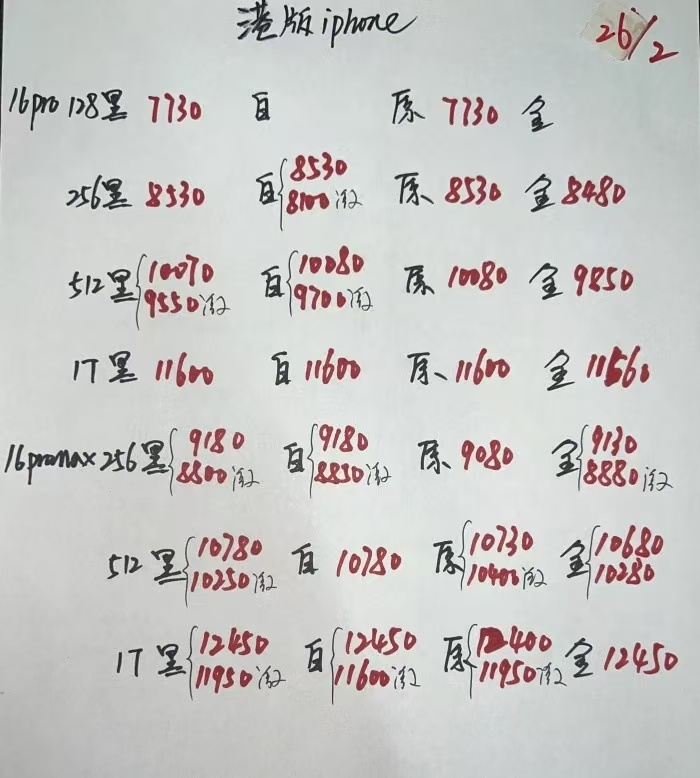 港版iphone 26/2
16pro 128黑 7730 白 原 7730 金
256黑 8530 白 8530 8100激 原 8530 金 8480
512黑 10070 9550激 白 10080 9700激 原 10080 金 9850
1T 黑 11600 白 11600 原 11600 金 11560
16promax 256黑 9180 8800激 白 9180 8830激 原 9080 金 9130 8880激
512 黑 10780 10250激 白 10780 原 10730 10400激 金 10680 10280
1T 黑 12450 11950激 白 12450 11600激 原 12400 11950激 金 12450